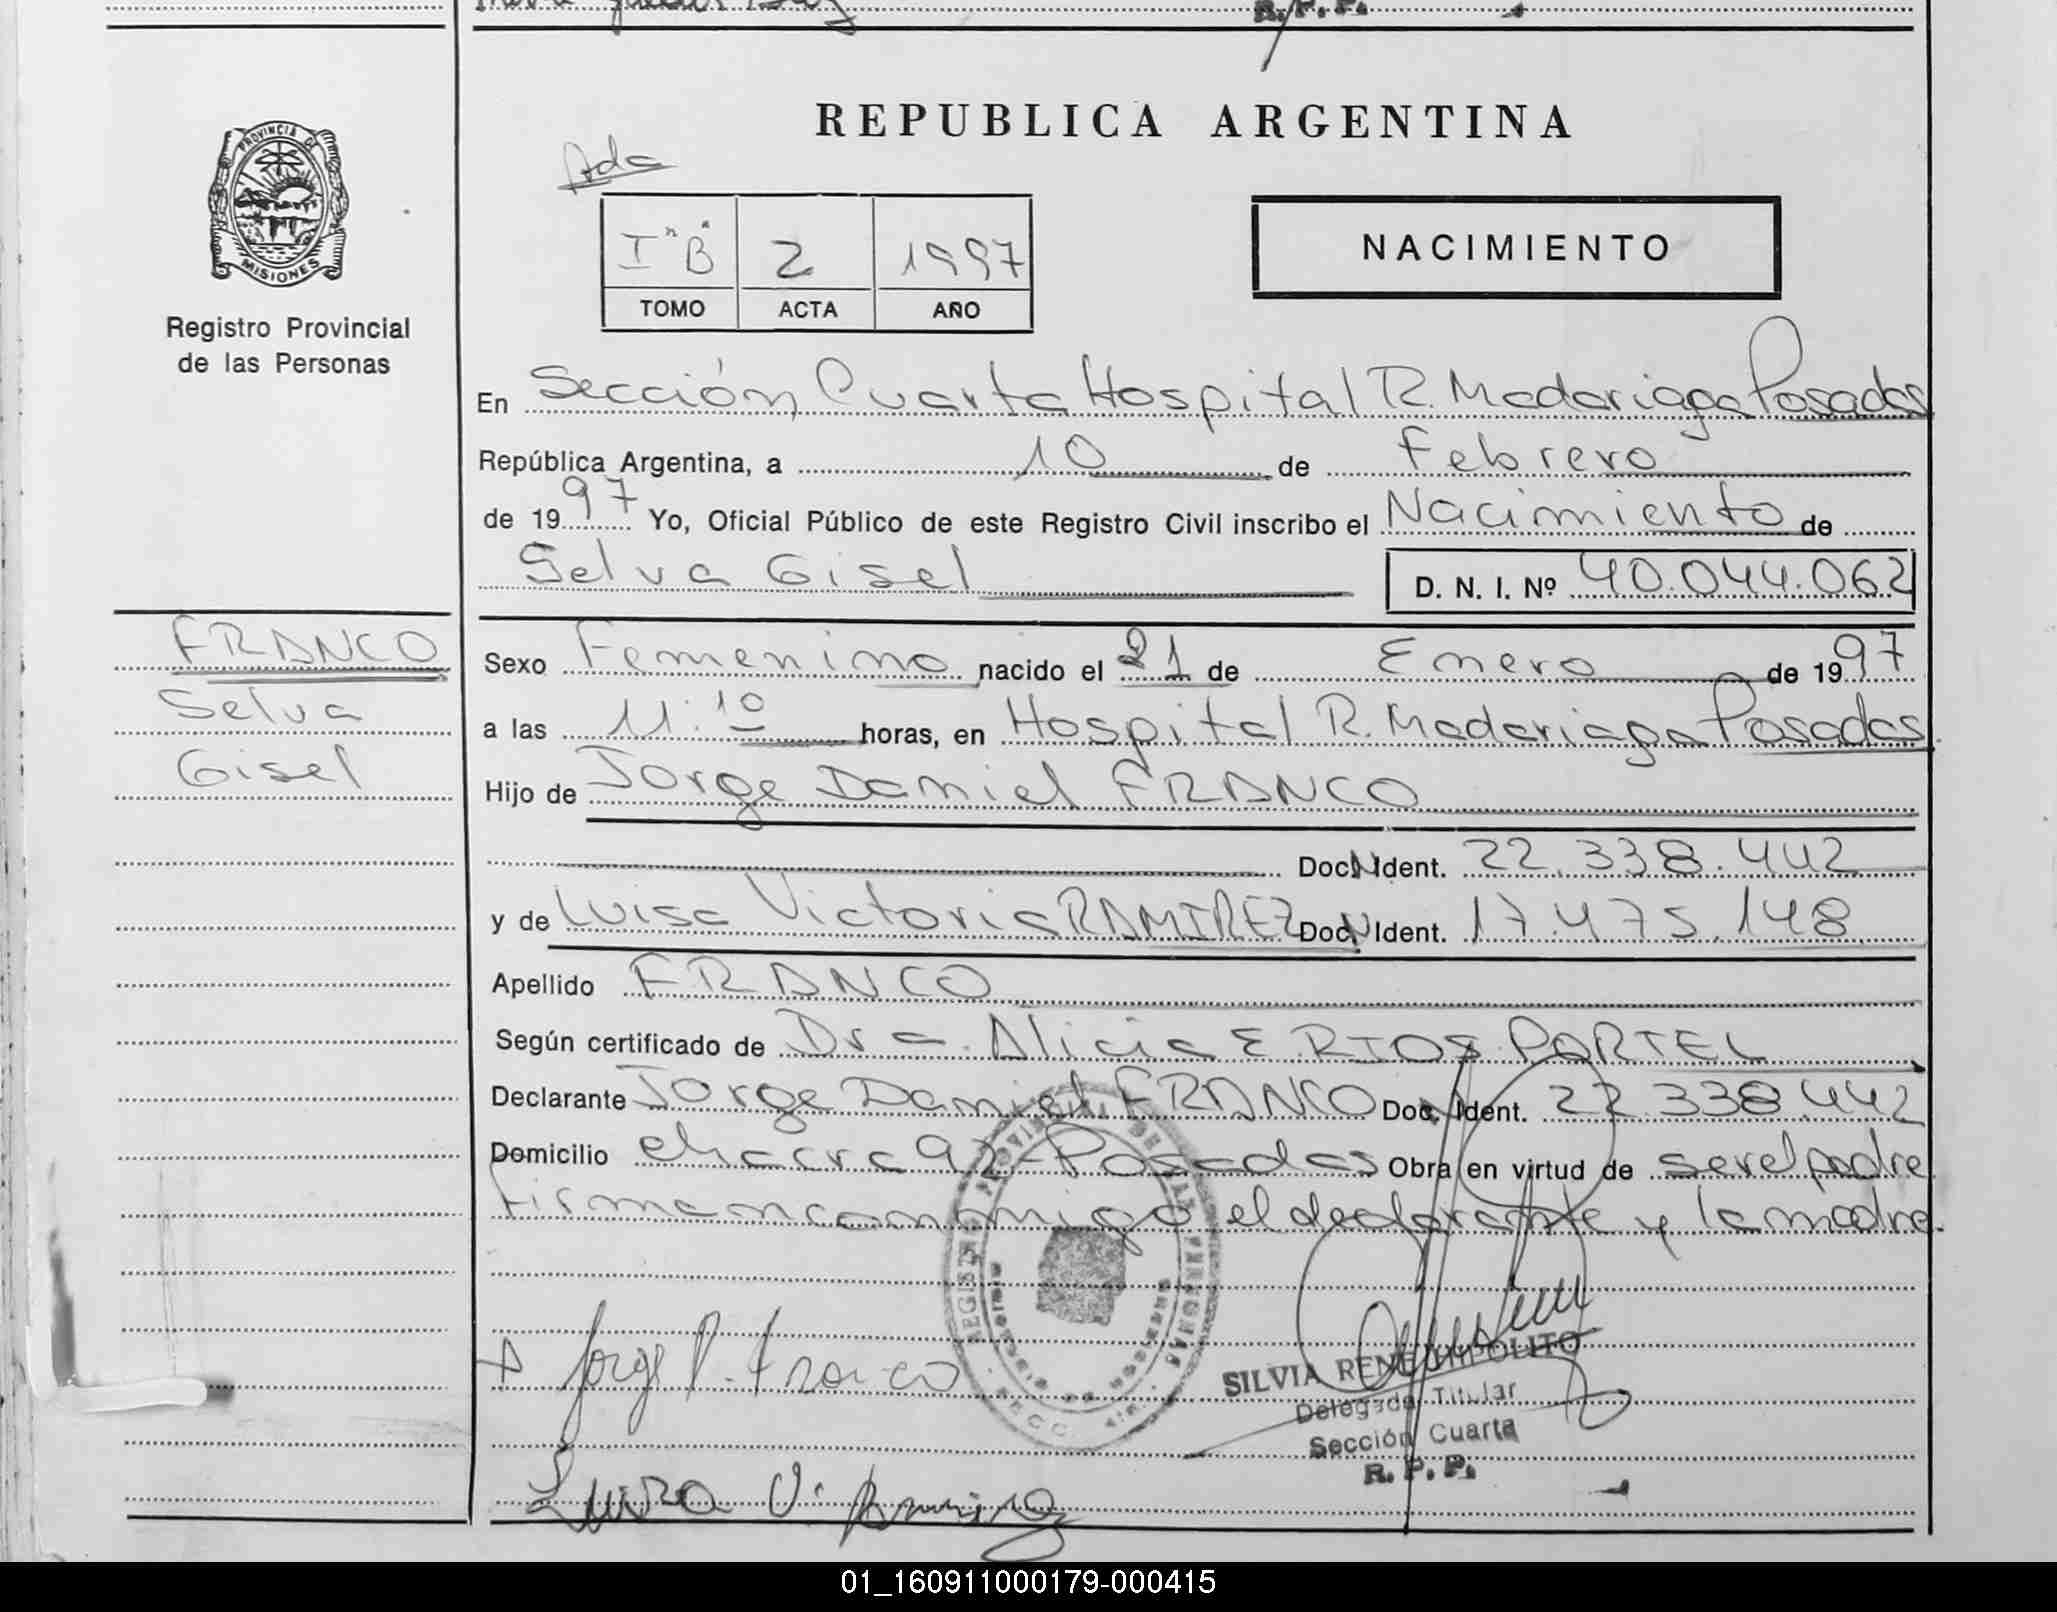 R. P. P.
PROVINCIA DE
MISIONES
Registro Provincial
de las Personas
REPUBLICA ARGENTINA
I "B" 2 1997
TOMO ACTA AÑO
NACIMIENTO
En Sección Cuarta Hospital R. Madariaga Posadas
República Argentina, a 10 de Febrero
de 1997 Yo, Oficial Público de este Registro Civil inscribo el Nacimiento de
Selva Gisel D. N. I. Nº 40.044.062
FRANCO
Selva
Gisel
Sexo Femenino nacido el 21 de Enero de 1997
a las 11:10 horas, en Hospital R. Madariaga Posadas.
Hijo de Jorge Daniel FRANCO
Doc. N Ident. 22.338.442
y de Luisa Victoria RAMIREZ Doc. N Ident. 17.475.148
Apellido FRANCO
Según certificado de Dra. Alicia E RIOS PORTEL
Declarante Jorge Daniel FRANCO Doc. Ident. 22.338.442
Domicilio chacra 92 - Posadas Obra en virtud de ser el padre
firman conmigo el declarante y la madre.
Jorge D. Franco
SILVIA RENE HIPOLITO
Delegada Titular
Sección Cuarta
R. P. P.
Luisa V. Ramirez
01_160911000179-000415